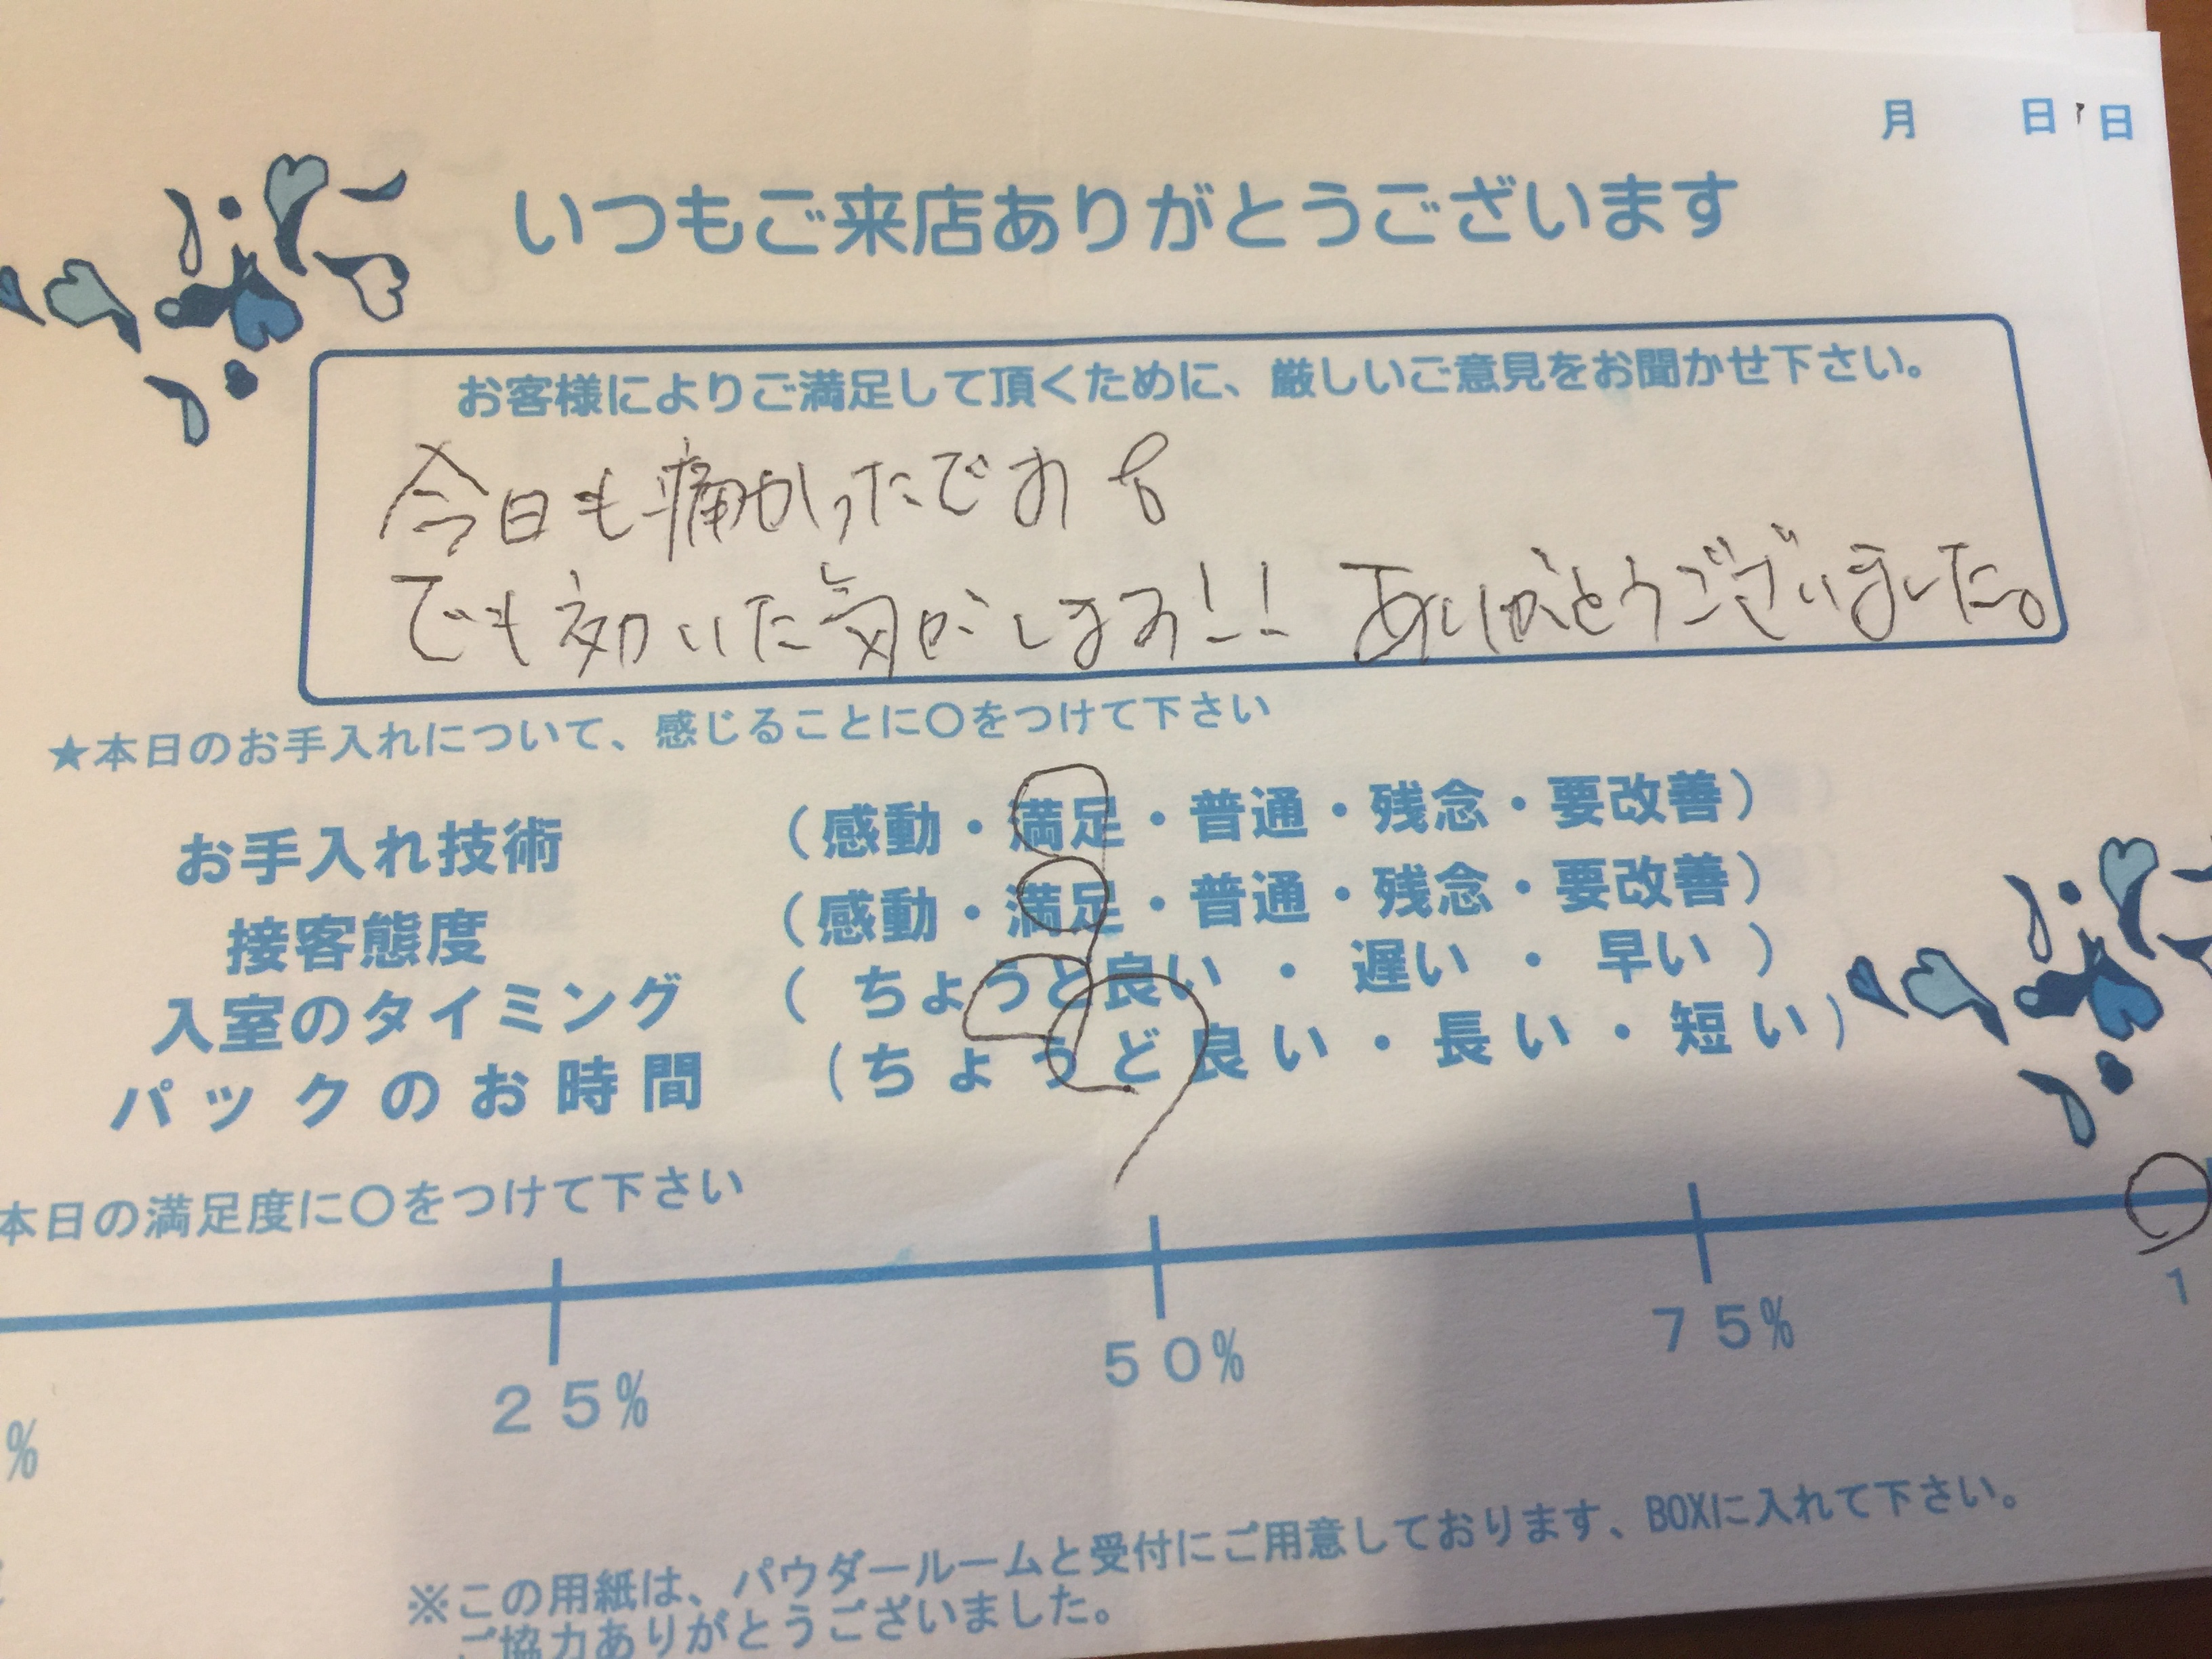 月 日 日
いつもご来店ありがとうございます
お客様によりご満足して頂くために、厳しいご意見をお聞かせ下さい。
今日も痛かったです
でも効いた気がします!! ありがとうございました。
★本日のお手入れについて、感じることに〇をつけて下さい
お手入れ技術 (感動・満足・普通・残念・要改善)
接客態度 (感動・満足・普通・残念・要改善)
入室のタイミング ( ちょうど良い ・ 遅い ・ 早い )
パックのお時間 (ちょうど良い・長い・短い)
本日の満足度に〇をつけて下さい
% 25% 50% 75% 1
※この用紙は、パウダールームと受付にご用意しております、BOXに入れて下さい。
ご協力ありがとうございました。